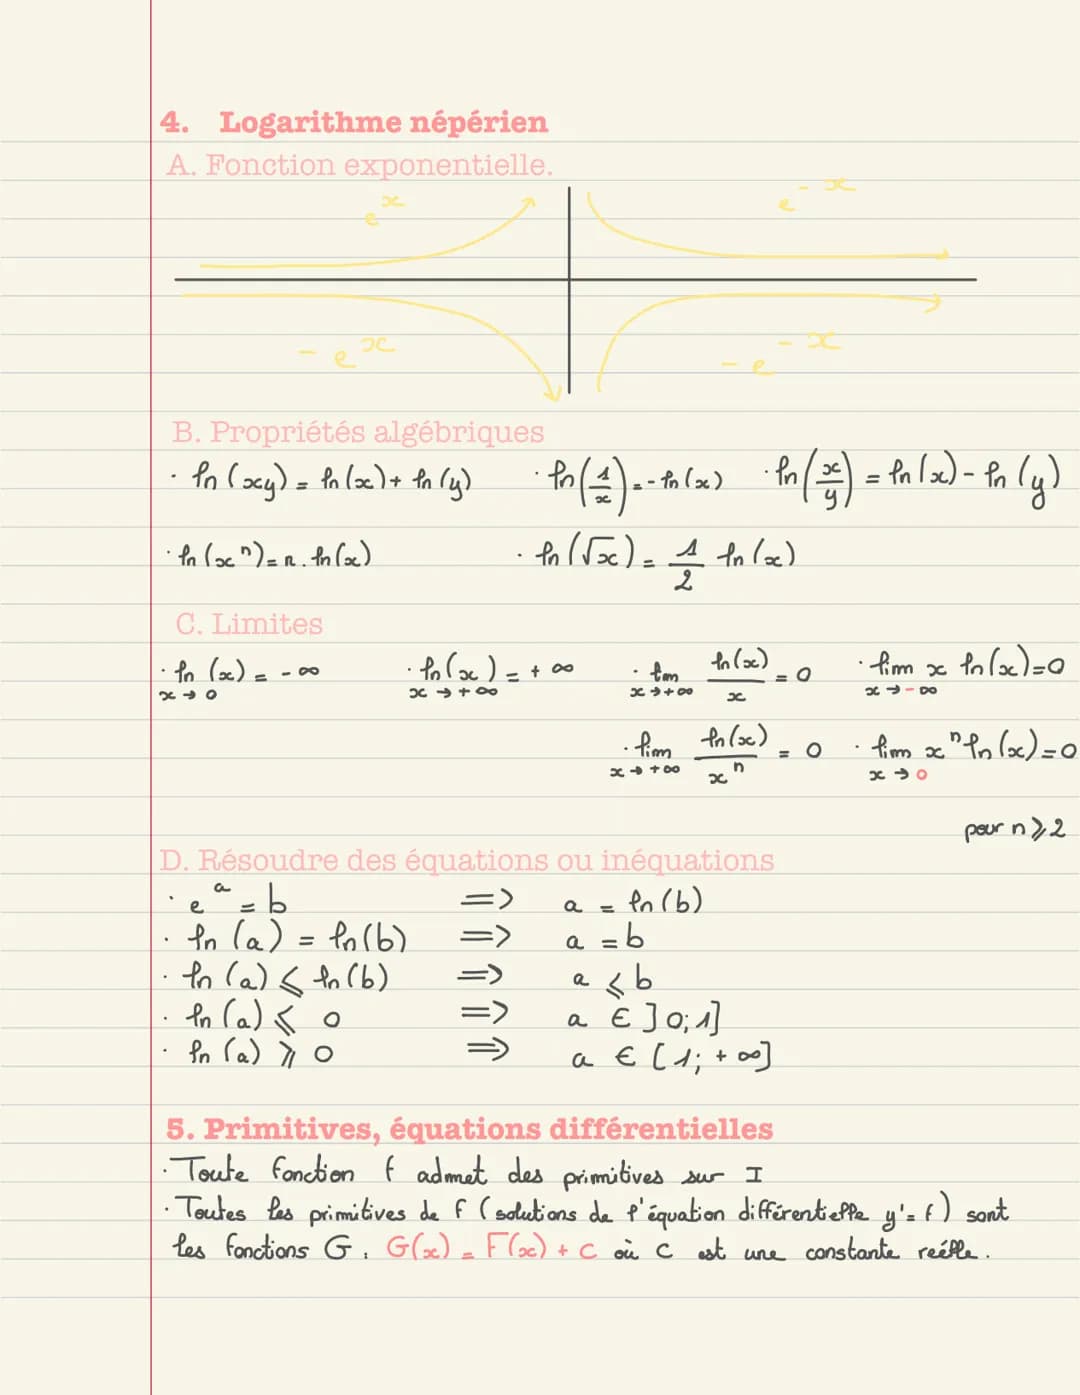 4. Logarithme népérien
A. Fonction exponentielle.
eˣ e⁻ˣ
- eˣ - e⁻ˣ
B. Propriétés algébriques
· ln(xy) = ln(x) + ln(y) · ln(1/x) = - ln(x) · ln(x/y) = ln(x) - ln(y)
· ln(xⁿ) = n . ln(x) · ln(√x) = 1/2 ln(x)
C. Limites
· ln(x) = - ∞ · ln(x) = + ∞ · lim ln(x)/x = 0 · lim x ln(x) = 0
x → 0 x → +∞ x → +∞ x → -∞
· lim ln(x)/xⁿ = 0 · lim xⁿ ln(x) = 0
x → +∞ x → 0
pour n ⩾ 2
D. Résoudre des équations ou inéquations
· eᵃ = b => a = ln(b)
· ln(a) = ln(b) => a = b
· ln(a) ⩽ ln(b) => a ⩽ b
· ln(a) ⩽ 0 => a ∈ ]0; 1]
· ln(a) ⩾ 0 => a ∈ [1; + ∞]
5. Primitives, équations différentielles
· Toute fonction f admet des primitives sur I
· Toutes les primitives de f (solutions de l'équation différentielle y' = f) sont
les fonctions G : G(x) = F(x) + C où C est une constante réelle.